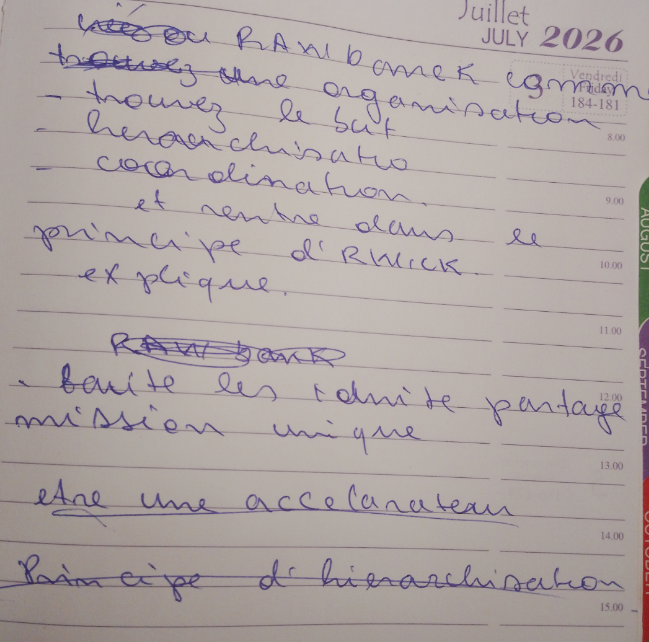 Juillet
JULY 2026
Vendredi
Friday
184-181
ou RAWbanck comm
trouvez une organisation
- trouvez le but
- herarchisatio
- coordination.
et rentre dans le
principe d'RWICK
explique.
RAWbank
les partage
mission unique
etre une accelarateur
Principe d'hierarchisation
8.00
9.00
10.00
11.00
12.00
13.00
14.00
15.00
AUGUST
SEPTEMBER
OCTOBER